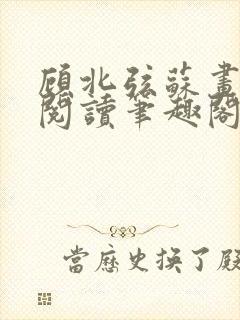 顧北弦蘇畫
閱讀筆趣閣
當歷史換了展